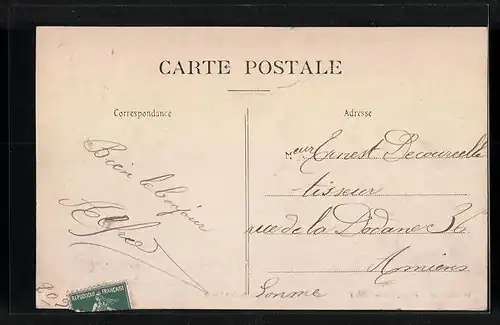 CARTE POSTALE
Correspondance
Adresse
Bien le bonjour
Meur Ernest Decourcelle
tisseur
rue de la Dodane 36
Amiens
Somme
REPUBLIQUE FRANCAISE